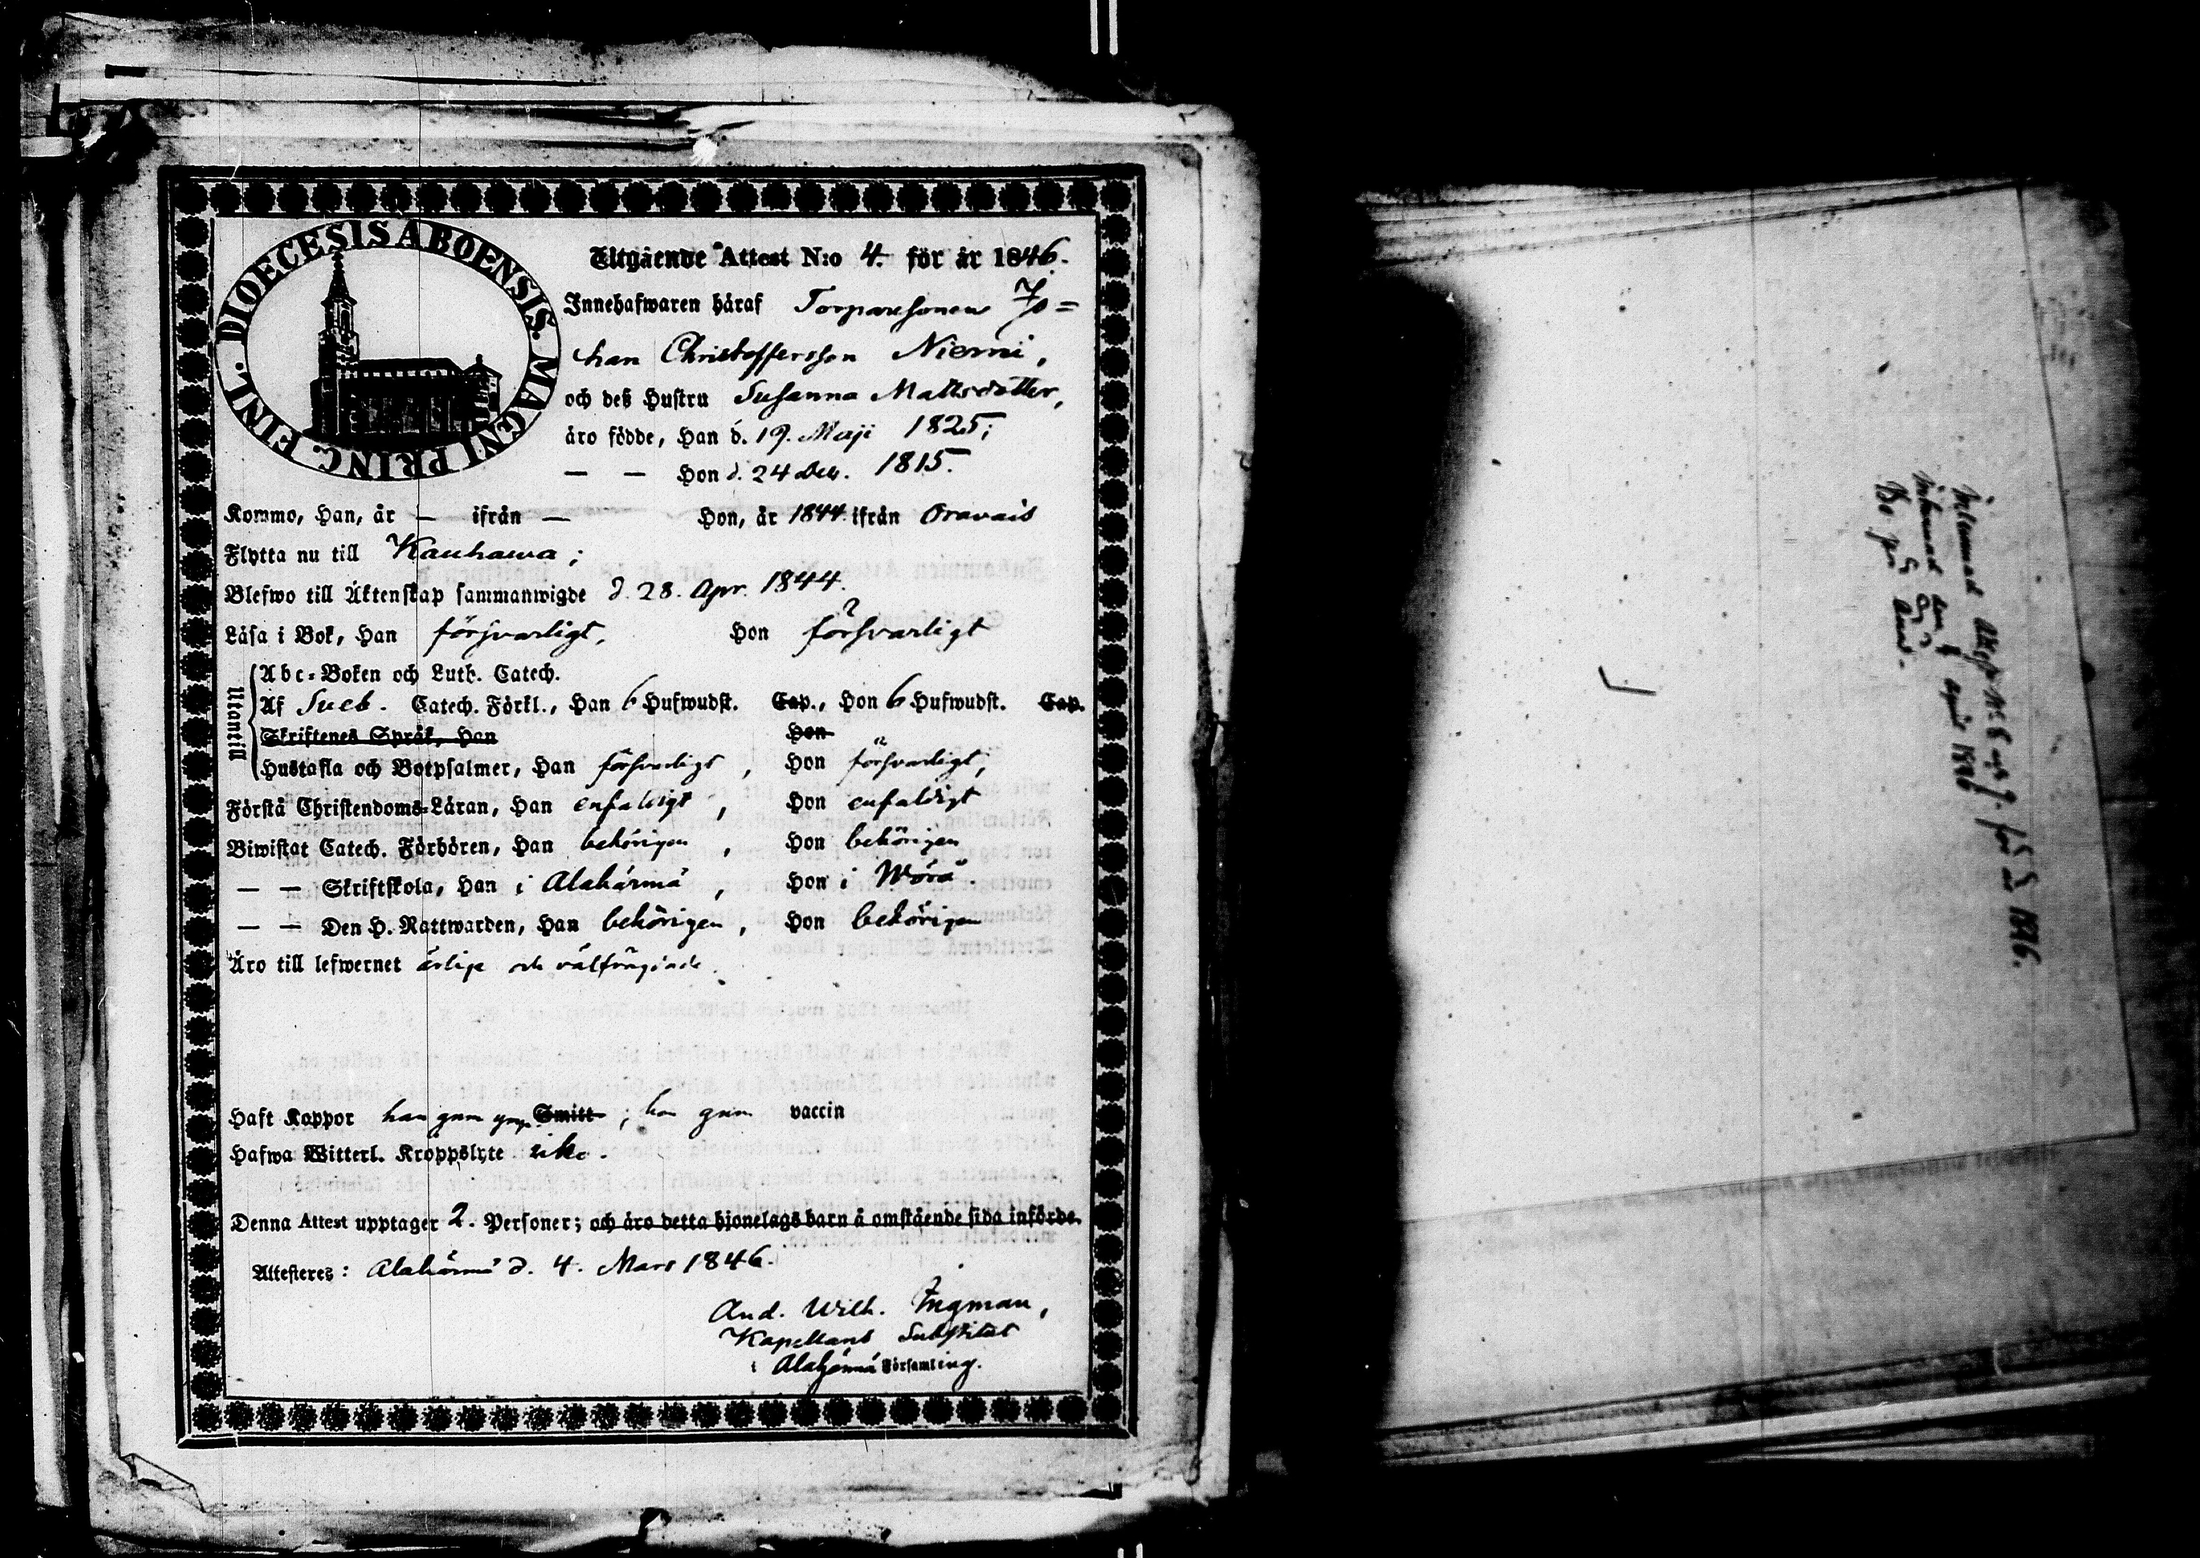 DIOECESIS ABOENSIS. MAGNI PRINC. FINL.
Utgående Attest N:o 4. för år 1846.
Innehafwaren häraf Torparesonen Jo=
han Christoffersson Niemi,
och deß Hustru Susanna Mattsdotter,
äro födde, Han d. 19. Maji 1825;
— — Hon d. 24 Dec. 1815.
Kommo, Han, år — ifrån — Hon, år 1844 ifrån Oravais
Flytta nu till Kauhawa;
Blefwo till Äktenskap sammanwigde d. 28. Apr. 1844.
Läsa i Bok, Han försvarligt, Hon försvarligt
Utantill
Abc-Boken och Luth. Catech.
Af Sveb. Catech. Förkl., Han 6 Hufwudst. Cap., Hon 6 Hufwudst. Cap.
Skriftenes Språk, Han Hon
Hustafla och Botpsalmer, Han försvarligt, Hon försvarligt,
Förstå Christendoms-Läran, Han enfaldigt, Hon enfaldigt
Biwistat Catech. Förhören, Han behörigen, Hon behörigen
— — Skriftskola, Han i Alahärmä, Hon i Wörå.
— — Den H. Nattwarden, Han behörigen, Hon behörigen
Äro till lefwernet ärlige och välfrägdade.
Haft Koppor han gnm Smitt; hon gnm vaccin
Hafwa Witterl. Kroppslyte icke.
Denna Attest upptager 2. Personer; och äro detta hjonelags barn å omstående sida införde.
Attesteres: Alahärmä d. 4. Mars 1846.
And. Wilh. Ingman,
Kapellans Substitut
i Alahärmä Församling.
Inlemnad Attest N:o 6 för år 1846.
April 1846